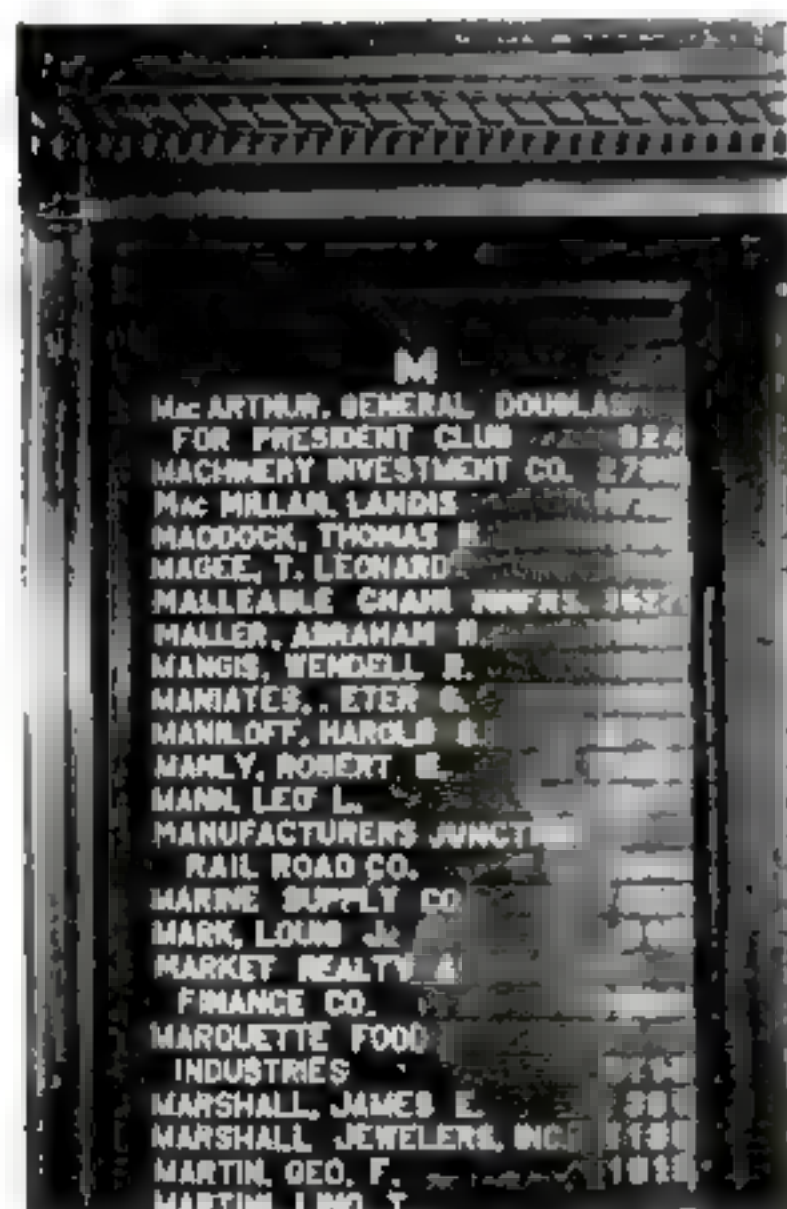 M
MacARTHUR, GENERAL DOUGLAS
FOR PRESIDENT CLUB 824
MACHINERY INVESTMENT CO.
MacMILLAN, LANDIS
MADDOCK, THOMAS
MAGEE, T. LEONARD
MALLEABLE CHAIN MNFRS.
MALLER, ABRAHAM H.
MANGIS, WENDELL R.
MANIATES, ETER G.
MANILOFF, HAROLD
MANLY, ROBERT E.
MANN, LEO L.
MANUFACTURERS JUNCT
RAIL ROAD CO.
MARINE SUPPLY CO
MARK, LOUIS Jr
MARKET REALTY &
FINANCE CO.
MARQUETTE FOOD
INDUSTRIES
MARSHALL, JAMES E.
MARSHALL JEWELERS, INC.
MARTIN, GEO. F.
MARTIN, LINO T.